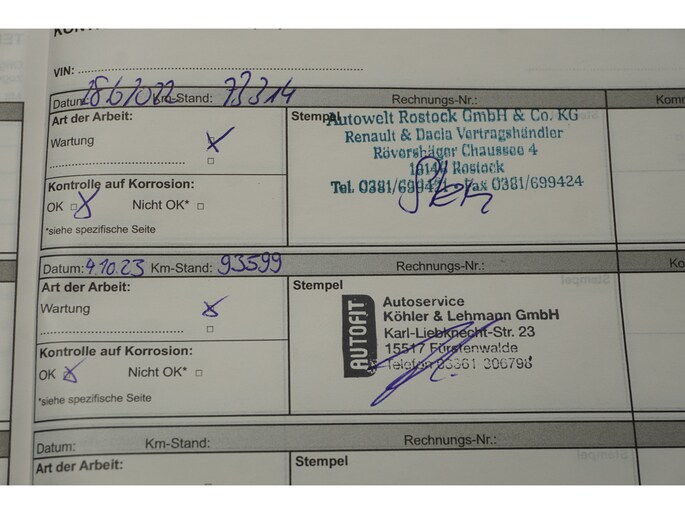 KONT
VIN:
Datum: 28.6.2022 Km-Stand: 73314 Rechnungs-Nr.: Komm
Art der Arbeit: Stempel
Wartung
Autowelt Rostock GmbH & Co. KG
Renault & Dacia Vertragshändler
Rövershäger Chaussee 4
18146 Rostock
Tel. 0381/699421 Fax 0381/699424
Kontrolle auf Korrosion:
OK Nicht OK*
*siehe spezifische Seite
Datum: 4.10.23 Km-Stand: 93599 Rechnungs-Nr.: Ko
Art der Arbeit: Stempel
Wartung
AUTOFIT
Autoservice
Köhler & Lehmann GmbH
Karl-Liebknecht-Str. 23
15517 Fürstenwalde
Telefon 03361 306798
Kontrolle auf Korrosion:
OK Nicht OK*
*siehe spezifische Seite
Datum: Km-Stand: Rechnungs-Nr.:
Art der Arbeit: Stempel